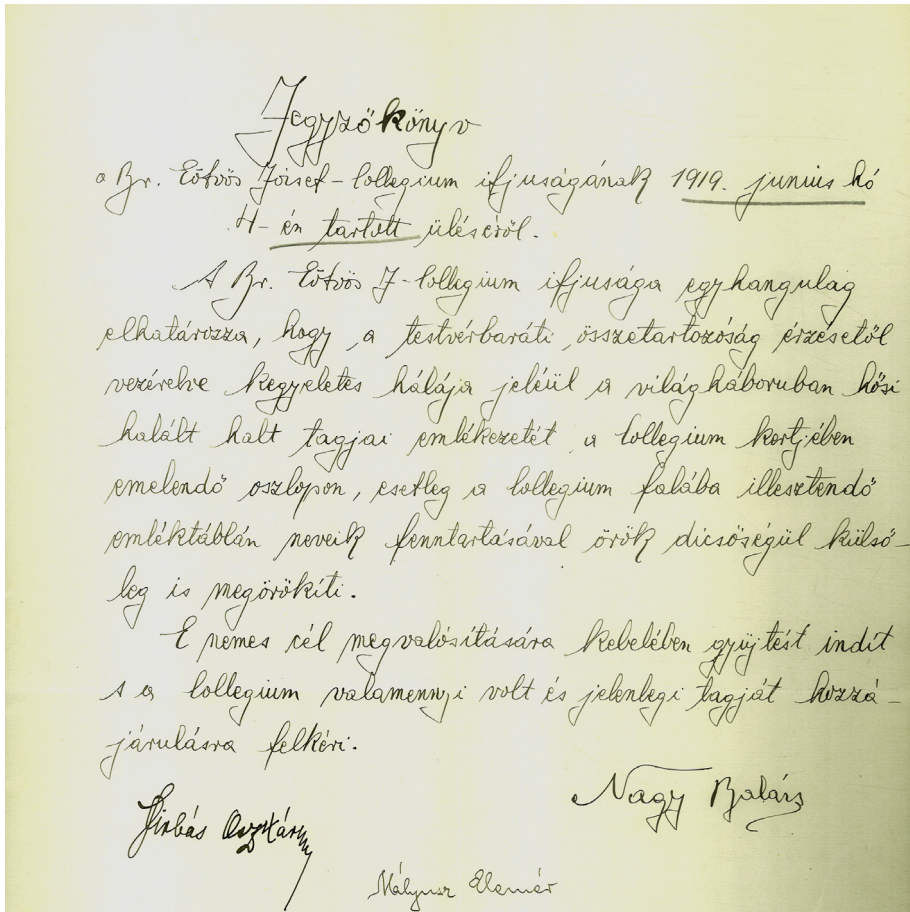 Jegyzőkönyv
a Br. Eötvös József-Collegium ifjuságának 1919. junius hó
4-én tartott üléséről.
A Br. Eötvös J-Collegium ifjusága egyhangulag
elhatározza, hogy a testvérbaráti összetartozóság érzésétől
vezérelve kegyeletes hálája jeléül a világháboruban hősi
halált halt tagjai emlékezetét a Collegium kertjében
emelendő oszlopon, esetleg a Collegium falába illesztendő
emléktáblán neveik fenntartásával örök dicsőségül külső-
leg is megörökíti.
E nemes cél megvalósítására kebelében gyüjtést indít
s a Collegium valamennyi volt és jelenlegi tagját hozzá-
járulásra felkéri.
Nagy Balázs
Oszkár
Mályusz Elemér